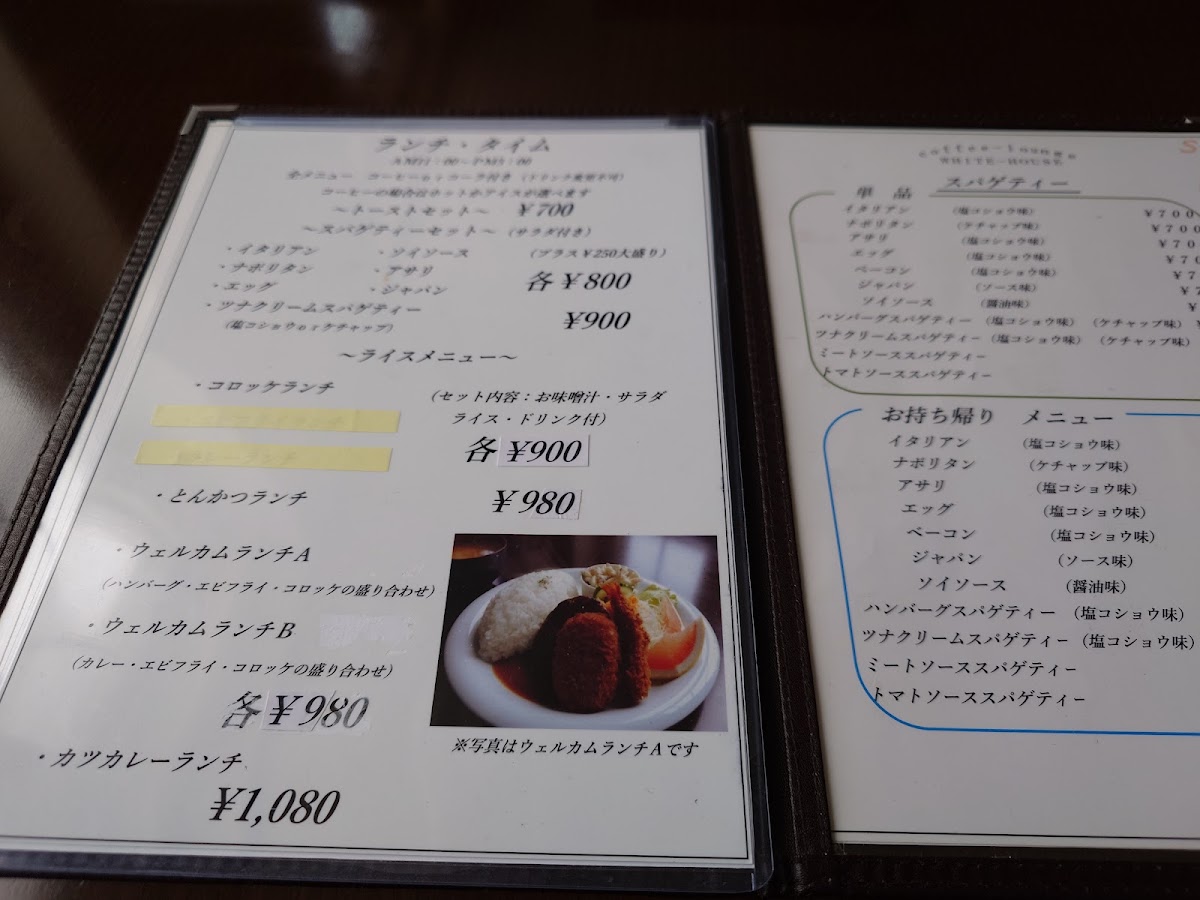 ランチ・タイム
AM11:00~PM5:00
全メニュー コーヒーorコーラ付き(ドリンク変更不可)
コーヒーの場合はホットかアイスが選べます
~トーストセット~ ¥700
~スパゲティーセット~ (サラダ付き)
・イタリアン ・ソイソース (プラス¥250大盛り)
・ナポリタン ・アサリ
・エッグ ・ジャパン 各¥800
・ツナクリームスパゲティー ¥900
(塩コショウorケチャップ)
~ライスメニュー~
・コロッケランチ (セット内容:お味噌汁・サラダ
ライス・ドリンク付)
各 ¥900
・とんかつランチ ¥980
・ウェルカムランチA
(ハンバーグ・エビフライ・コロッケの盛り合わせ)
・ウェルカムランチB
(カレー・エビフライ・コロッケの盛り合わせ)
各 ¥980
・カツカレーランチ
¥1,080
※写真はウェルカムランチAです
coffee-lounge
WHITE-HOUSE
単品 スパゲティー
イタリアン (塩コショウ味) ¥700
ナポリタン (ケチャップ味) ¥700
アサリ (塩コショウ味) ¥70
エッグ (塩コショウ味) ¥70
ベーコン (塩コショウ味) ¥7
ジャパン (ソース味) ¥7
ソイソース (醤油味) ¥
ハンバーグスパゲティー (塩コショウ味) (ケチャップ味)
ツナクリームスパゲティー (塩コショウ味) (ケチャップ味)
ミートソーススパゲティー
トマトソーススパゲティー
お持ち帰り メニュー
イタリアン (塩コショウ味)
ナポリタン (ケチャップ味)
アサリ (塩コショウ味)
エッグ (塩コショウ味)
ベーコン (塩コショウ味)
ジャパン (ソース味)
ソイソース (醤油味)
ハンバーグスパゲティー (塩コショウ味)
ツナクリームスパゲティー (塩コショウ味)
ミートソーススパゲティー
トマトソーススパゲティー